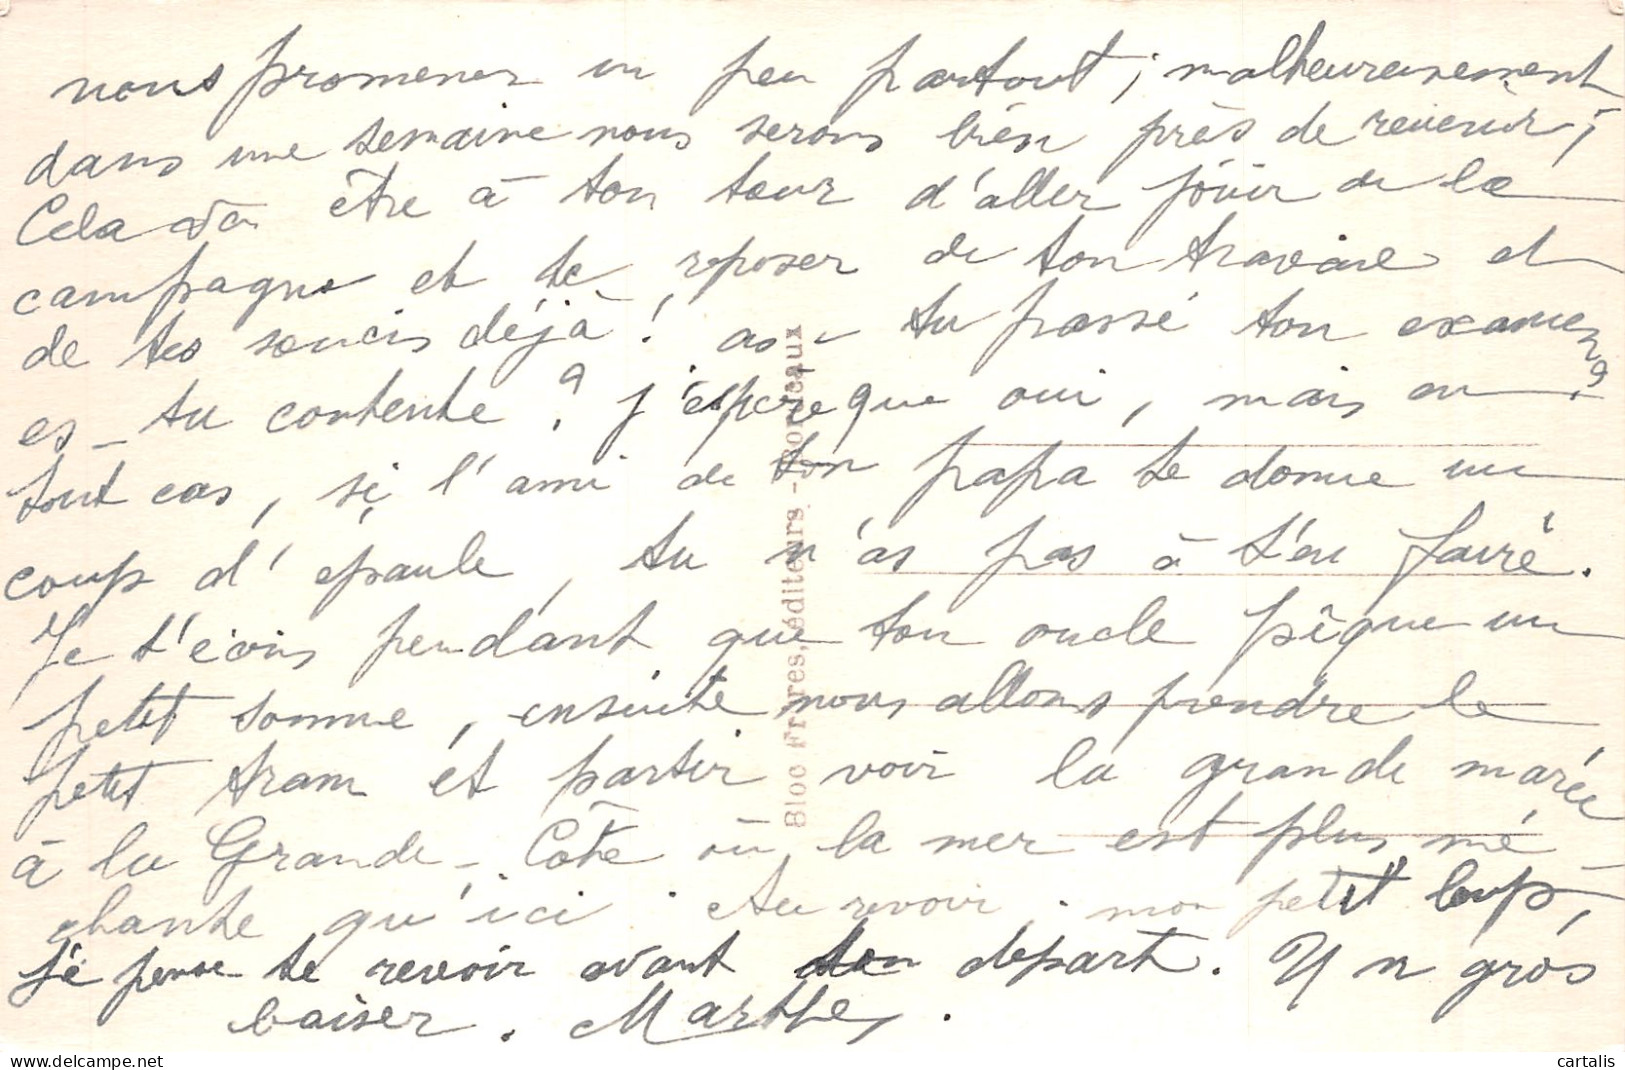 nous promener un peu partout; malheureusement
dans une semaine nous serons bien près de revenir;
Cela va être à ton tour d'aller jouir de la
campagne et de reposer de ton travail et
de tes soucis déjà! as-tu passé ton examen?
es-tu contente? j'espère que oui, mais en
tout cas, si l'ami de ton papa te donne un
coup d'épaule, tu n'as pas à t'en faire.
Je t'écris pendant que ton oncle pique un
petit somme, ensuite nous allons prendre le
petit tram et partir voir la grande marée
à la Grande-Côte où la mer est plus mé-
chante qu'ici. Au revoir, mon petit loup,
je pense te revoir avant ton départ. Un gros
baiser. Marthe.
Bloc Frères, éditeurs - Bordeaux
cartalis